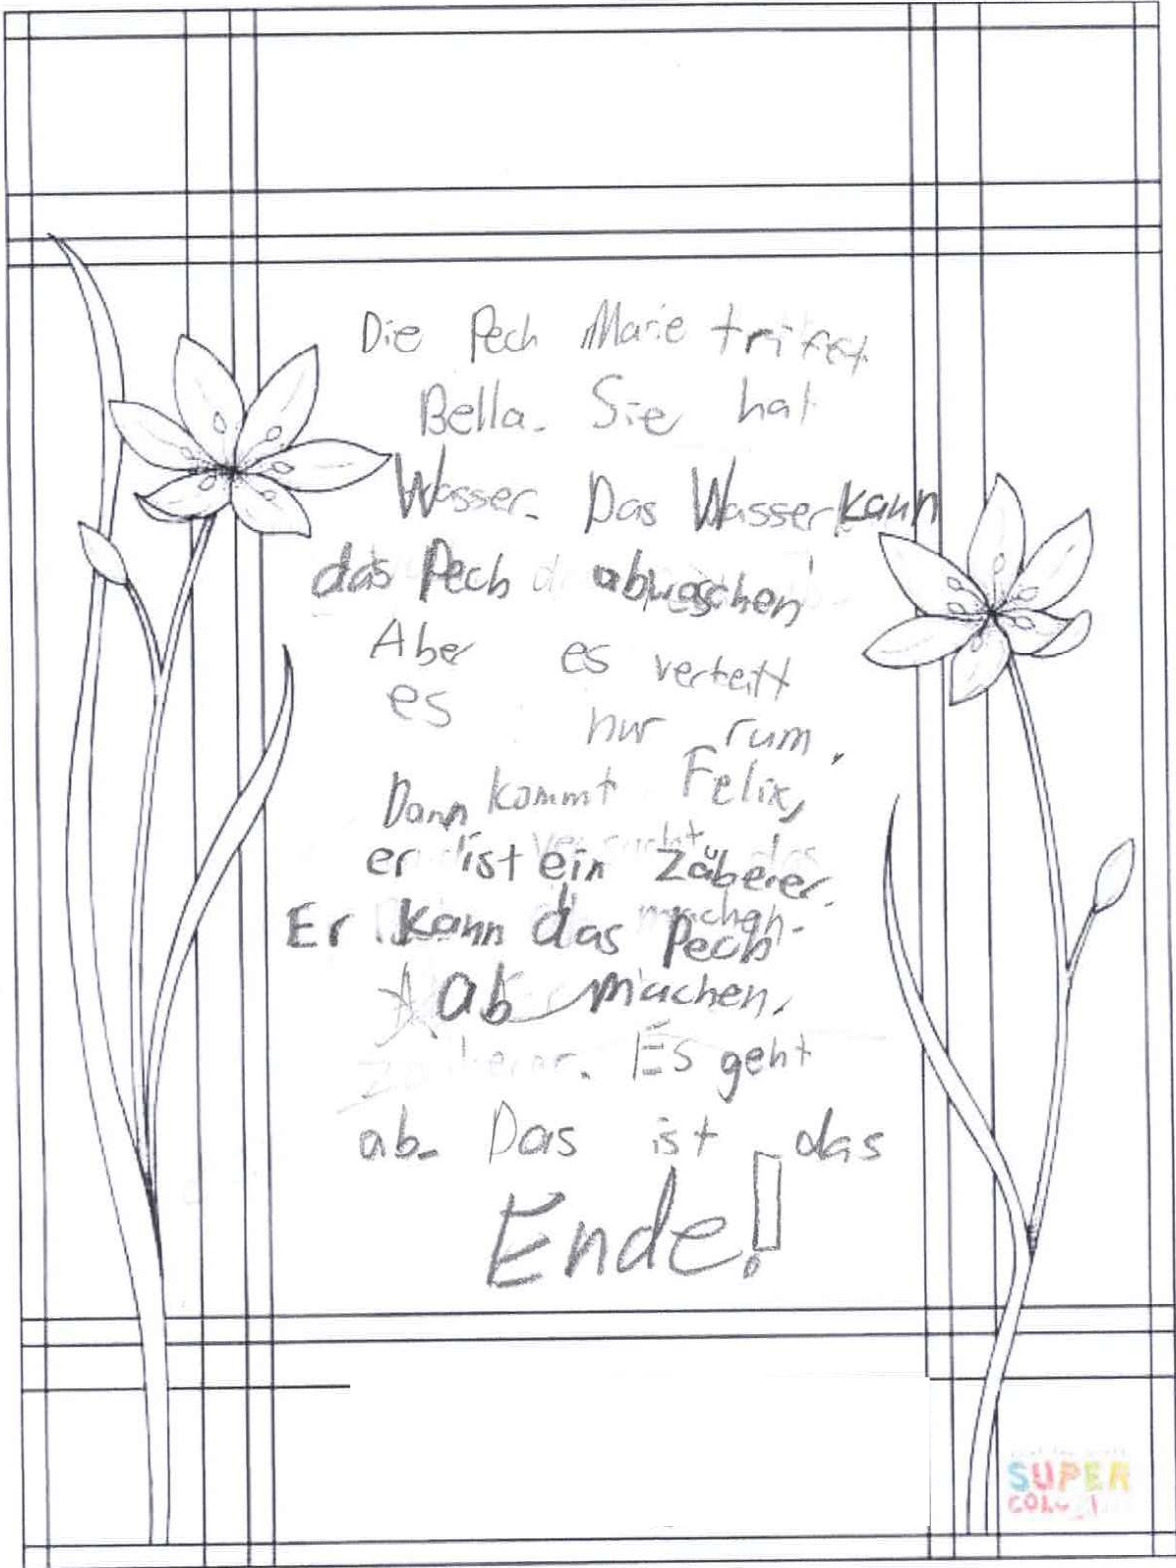 Die Pech Marie trifft
Bella. Sie hat
Wasser. Das Wasser kann
das Pech abwaschen
Aber es verteilt
es nur rum.
Dann kommt Felix,
er ist ein Zäuberer.
Er kann das Pech
ab machen.
Es geht
ab. Das ist das
Ende!
SUPER